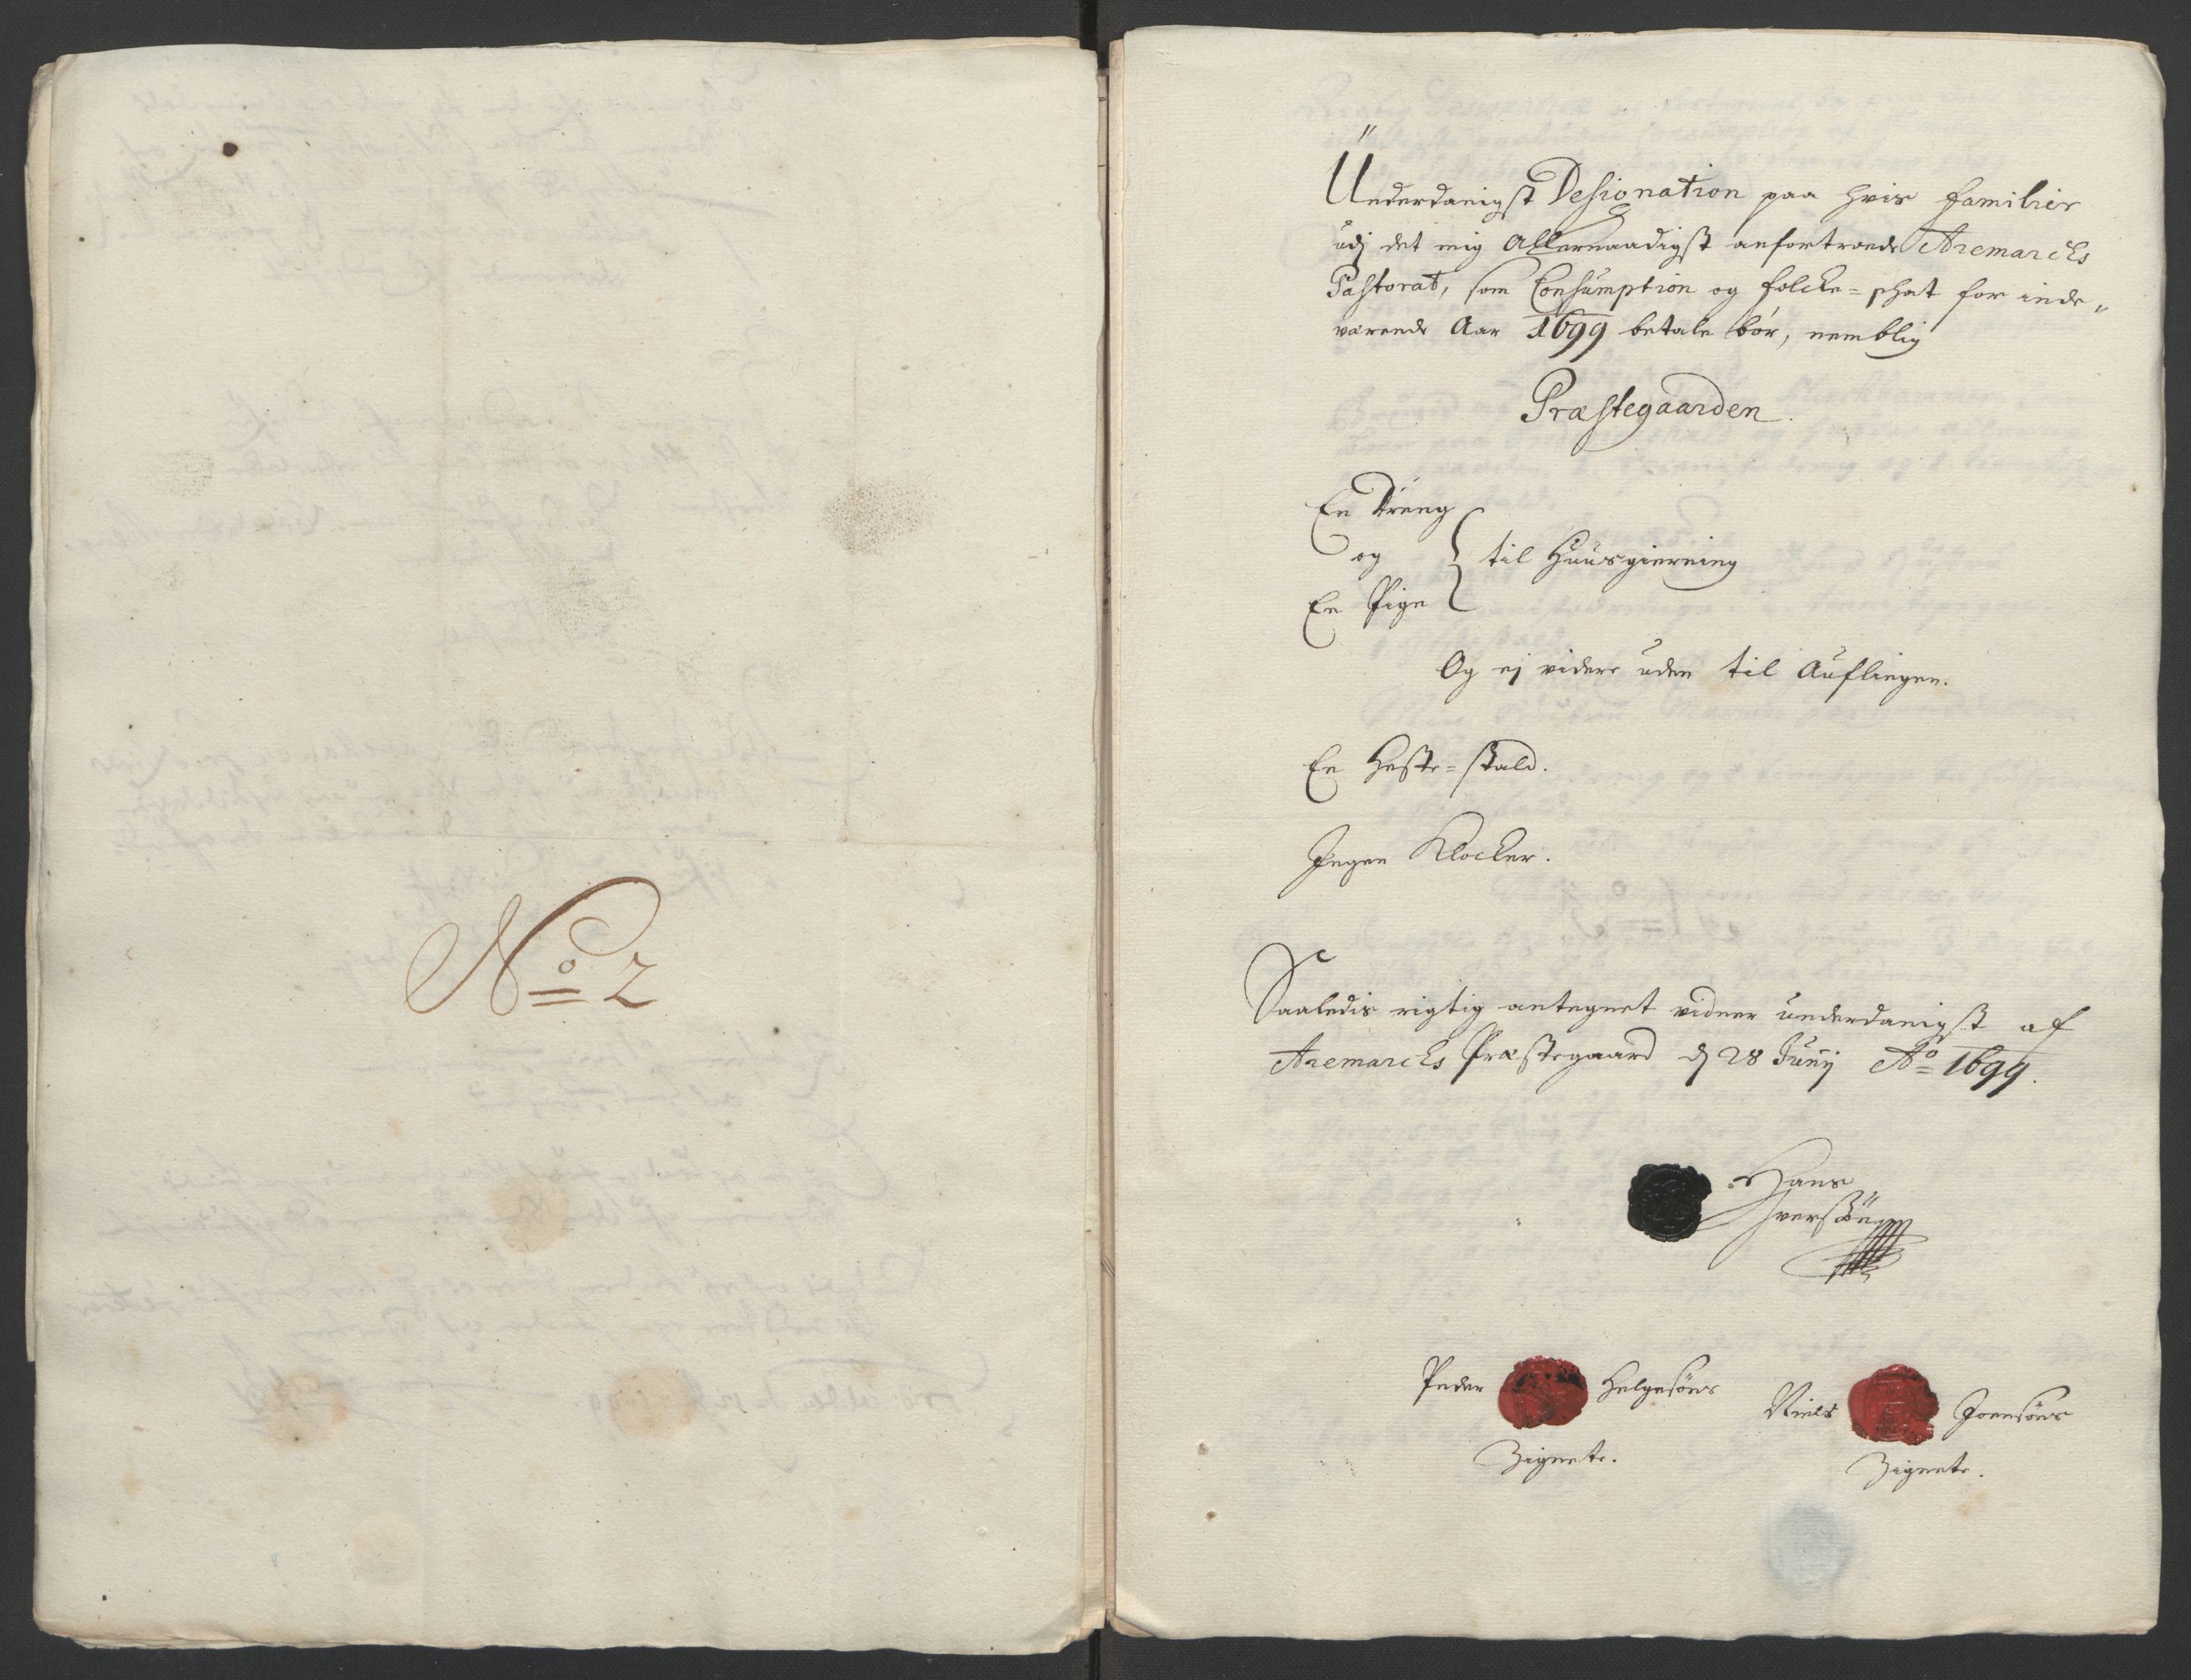 No 2
Underdanigst Designation paa hvis familier
udj det mig Allernaadigst anfortroede Aremarcks
Pastorat, som Consumption og folcke=skat for inde„
værende Aar 1699 betale bör, nemblig
Præstegaarden.
En Dreng
og } til Huusgierning
En Pige
Og ej videre uden til Auflingen.
En Heste=stald.
Ingen Klocker.
Saaledis rigtig antegnet vidner underdanigst af
Aremarcks Præstegaard d 28 Junij Ao 1699.
Hans
Iversöen
Peder Helgesöns
Zignete.
Niels Joensöns
Zignete.